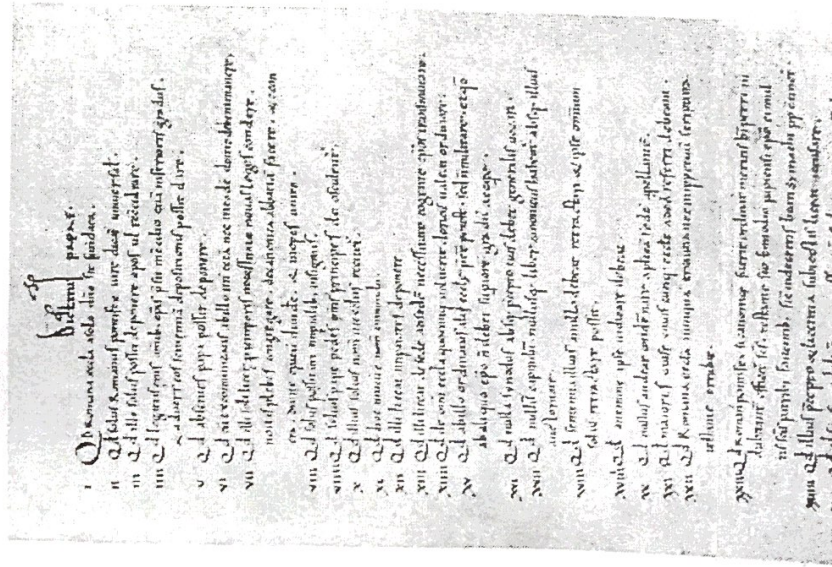 Dictatus papae.
I Qd Romana eccla a solo dño sit fundata.
II Qd solus Romanus pontifex iure dicat universał.
III Qd ille solus possit deponere epos ul reciliare.
IIII Qd legatus eius omib; epis presit in cilio etiã inferioris gradus.
& adversus eos sententiã depositionis possit dare.
V Qd absentes papa possit deponere.
VI Qd cũ excomunicatis ab illo int cetã nec in eadẽ domo debemus manere.
VII Qd illi soli licet p temporis necessitate novas leges condere.
novas plebes congregare. de canonica abbatiã facere. & econ
tra. divite dividere. & inopes unire.
VIII Qd solus possit uti imperialib; insigniis.
VIIII Qd solius pape pedes oms principes deosculent.
X Qd illius solius nom in ecclis recitet.
XI Qd hoc unicũ est nom in mundo.
XII Qd illi liceat imperatores deponere.
XIII Qd illi liceat de sede ad sedẽ necessitate cogente epos transmutare.
XIIII Qd de omi eccla quocunq; voluerit clericũ valeat ordinare.
XV Qd ab illo ordinatus alii eccle preẽ potest. sed n militare. et qd
ab aliquo epo n debet superiorẽ gradũ accipe.
XVI Qd nulla synodus absq; precepto eius debet generalis vocari.
XVII Qd nullũ capitulũ nullusq; liber canonicus habeat absq; illius
auctoritate.
XVIII Qd sententia illius a nullo debeat retractari. & ipse omniũ
solus retractare possit.
XVIIII Qd a nemine ipse iudicari debeat.
XX Qd nullus audeat condẽnare aplicã sedẽ apellantẽ.
XXI Qd maiores cause cuiuscunq; eccle ad eã referri debeant.
XXII Qd Romana eccla nunquã erravit nec inppetuũ scriptura
testante errabit.
XXIII Qd Romanus pontifex si canonice fuerit ordinatus meritis b. petri in
dubitanter efficit scs. testante sco Ennodio papiensi epo ei mul
tis scis patrib; faventib; sic in decretis beati symachi pp continet.
XXIIII Qd illius precepto & licentia subiectis liceat accusare.